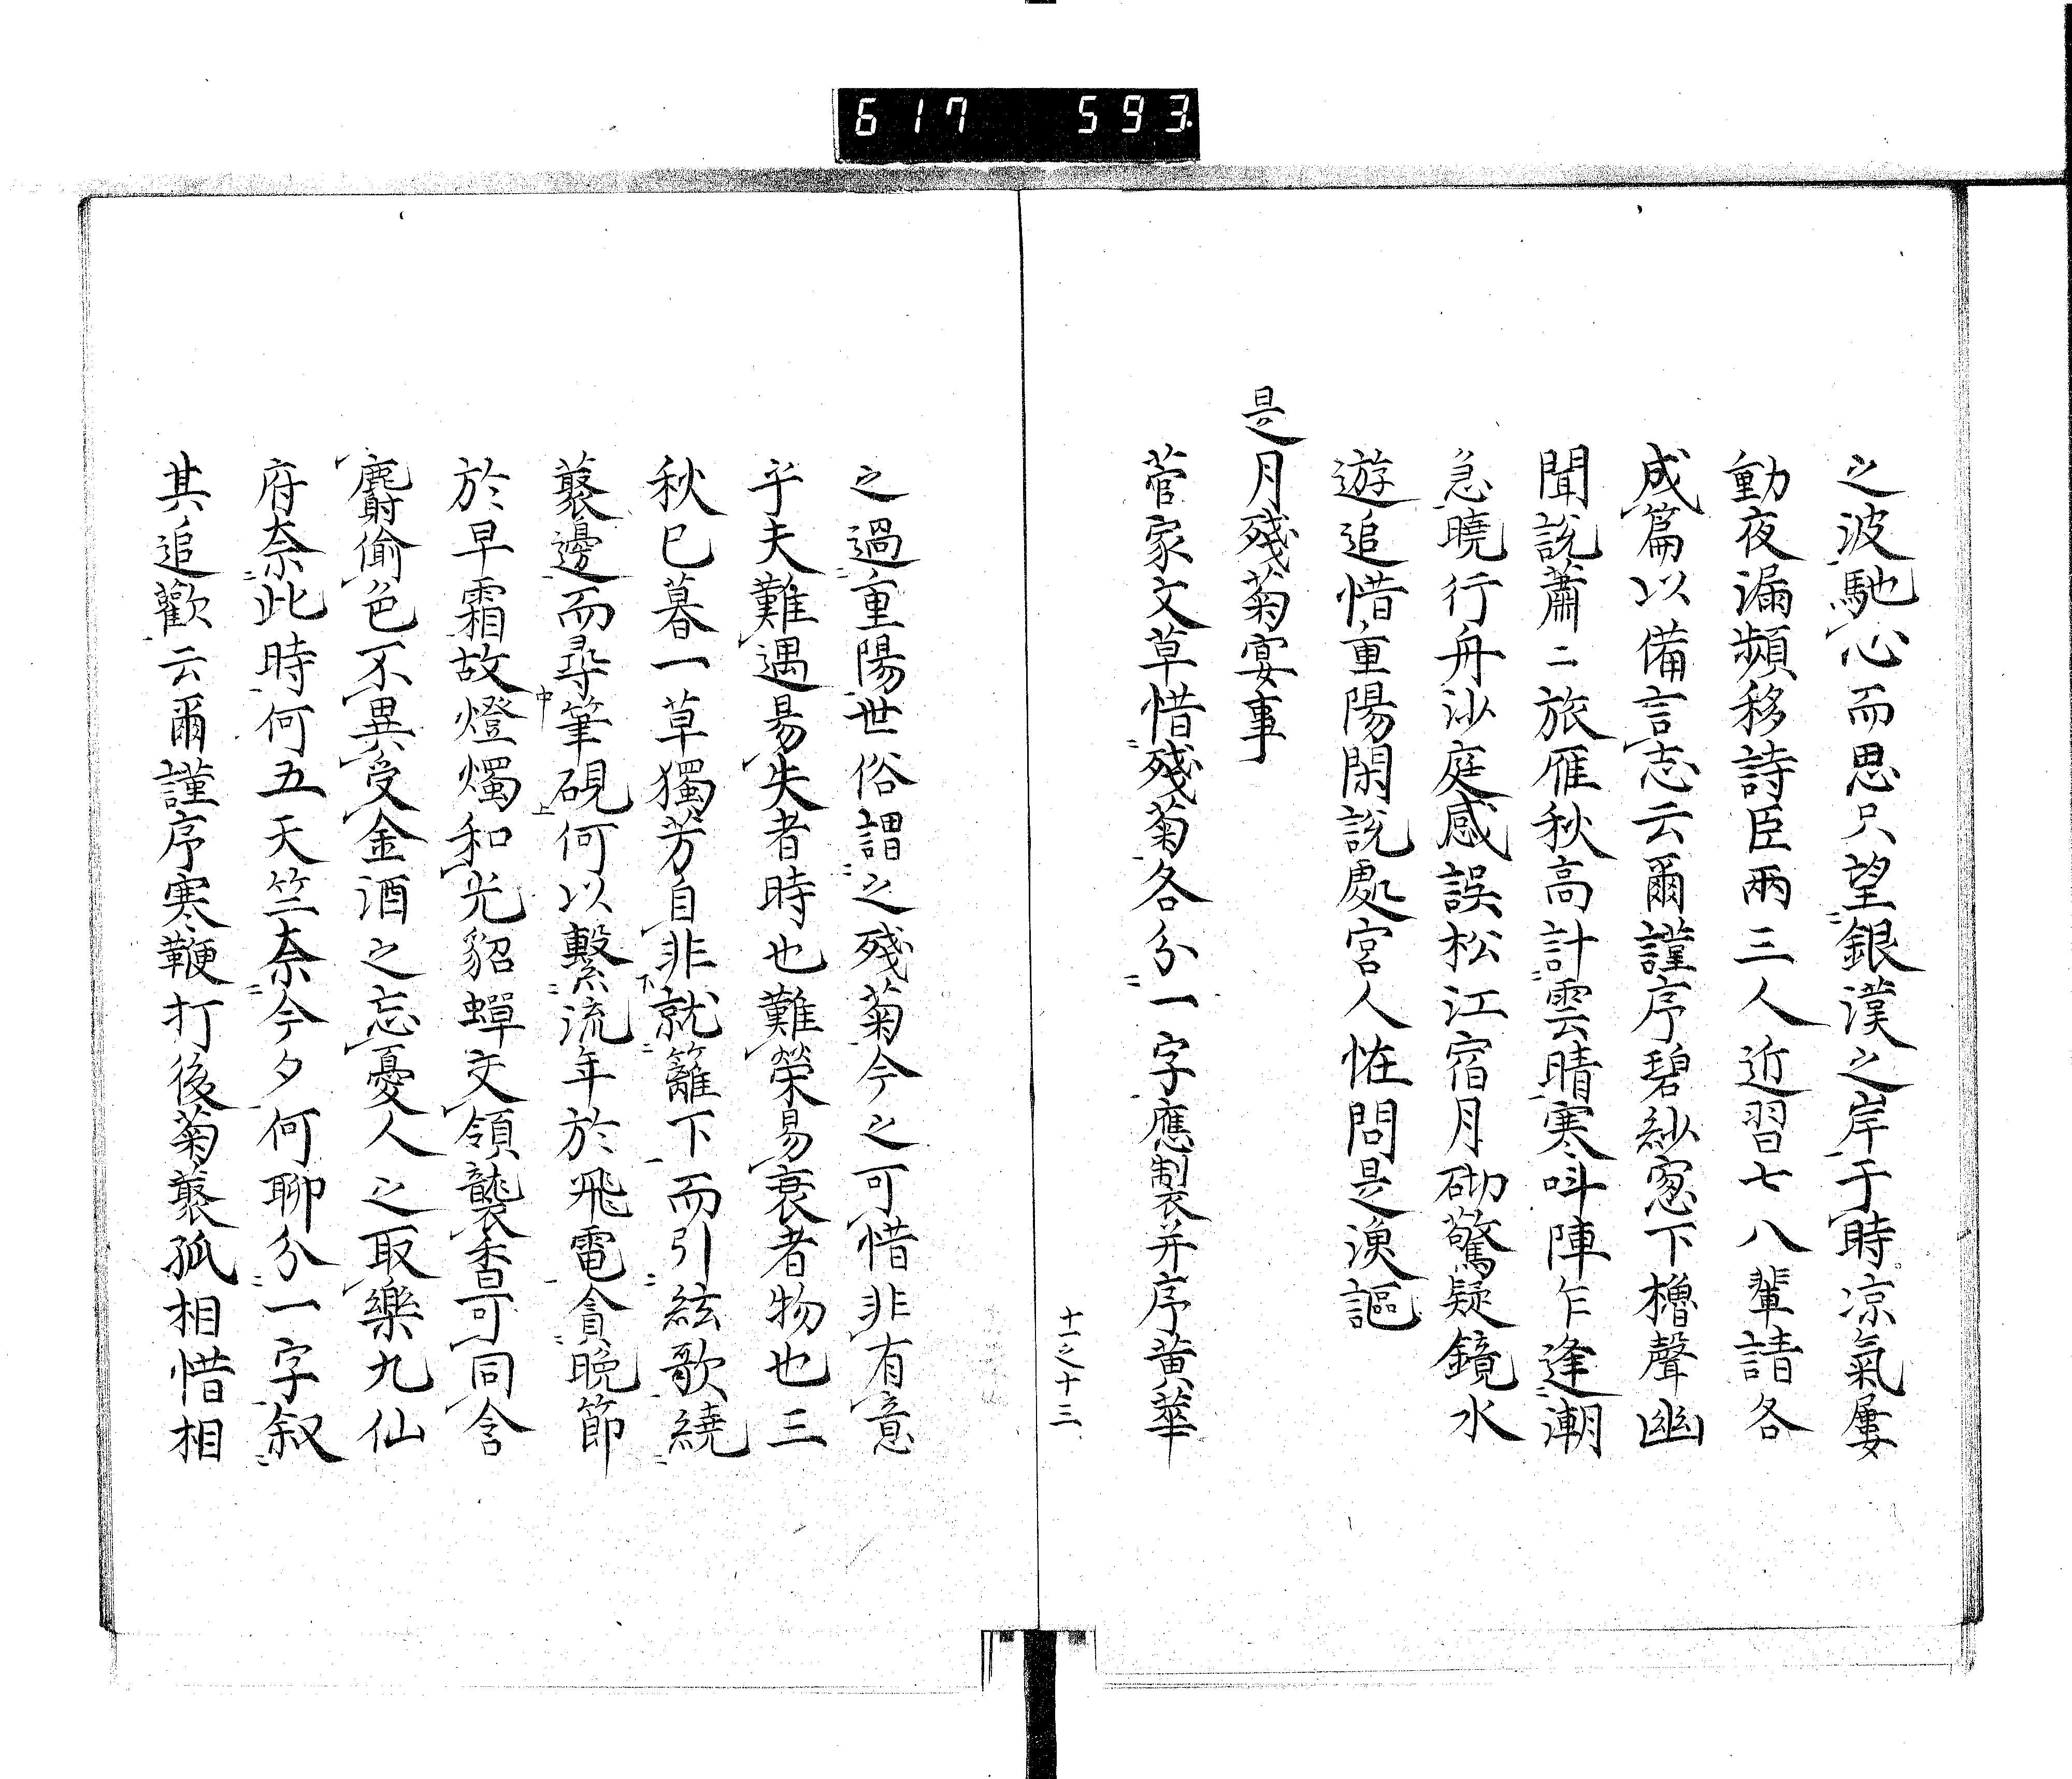 617 593.
之波馳心而思只望銀漢之岸于時凉氣屢
動夜漏頻移詩臣兩三人近習七八輩請各
成篇以備言志云爾謹序碧紗窓下櫓聲幽
聞說蕭〻旅雁秋高計雲晴寒呌陣乍逢潮
急曉行舟沙庭感誤松江宿月砌驚疑鏡水
遊追惜重陽閑說處宮人怪問是漁謳
是月殘菊宴事
菅家文草惜二殘菊一各分二一字一應製并序黃華
十一之十三
之過二重陽一世俗謂二之殘菊一今之可惜非有意
乎夫難遇易失者時也難榮易衰者物也三
秋已暮一草獨芳自非下就二籬下一而引二絃歌一繞二
叢邊一而尋中筆硯上何以繫二流年於飛電一貪二晚節
於早霜一故燈燭和光貂蟬交領襲香可同含
麝偷色不異受金酒之忘憂人之取樂九仙
府奈二此時一何五天竺奈二今夕一何聊分二一字一叙二
其追歡一云爾謹序寒鞭打後菊叢孤相惜相